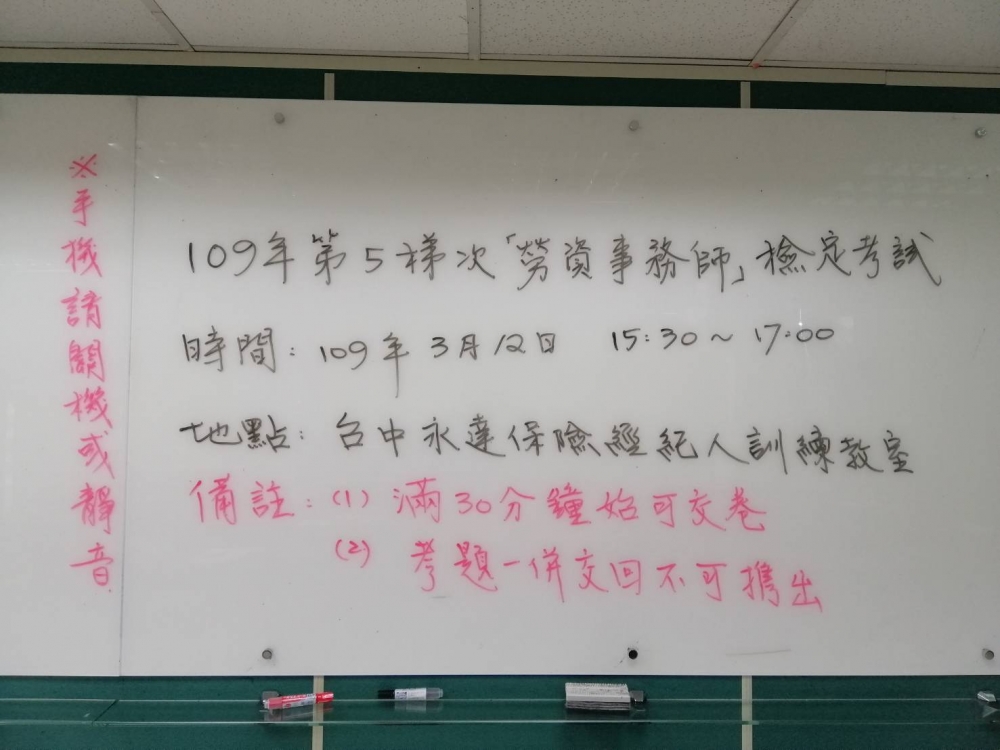 ※手機請關機或靜音
109年第5梯次「勞資事務師」檢定考試
時間：109年3月12日 15:30～17:00
地點：台中永達保險經紀人訓練教室
備註：(1) 滿30分鐘始可交卷
(2) 考題一併交回不可攜出